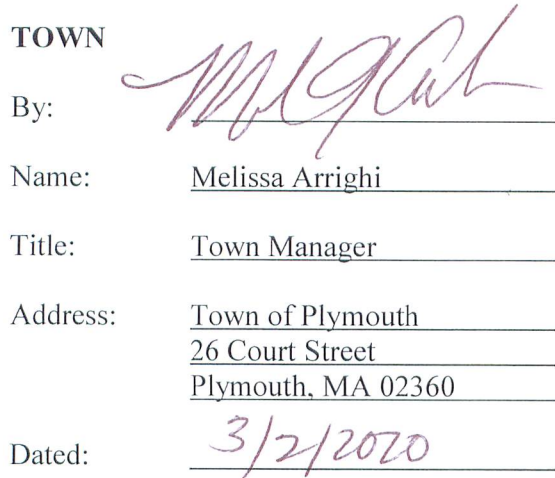 TOWN
By:
Name: Melissa Arrighi
Title: Town Manager
Address: Town of Plymouth
26 Court Street
Plymouth, MA 02360
Dated: 3/2/2020